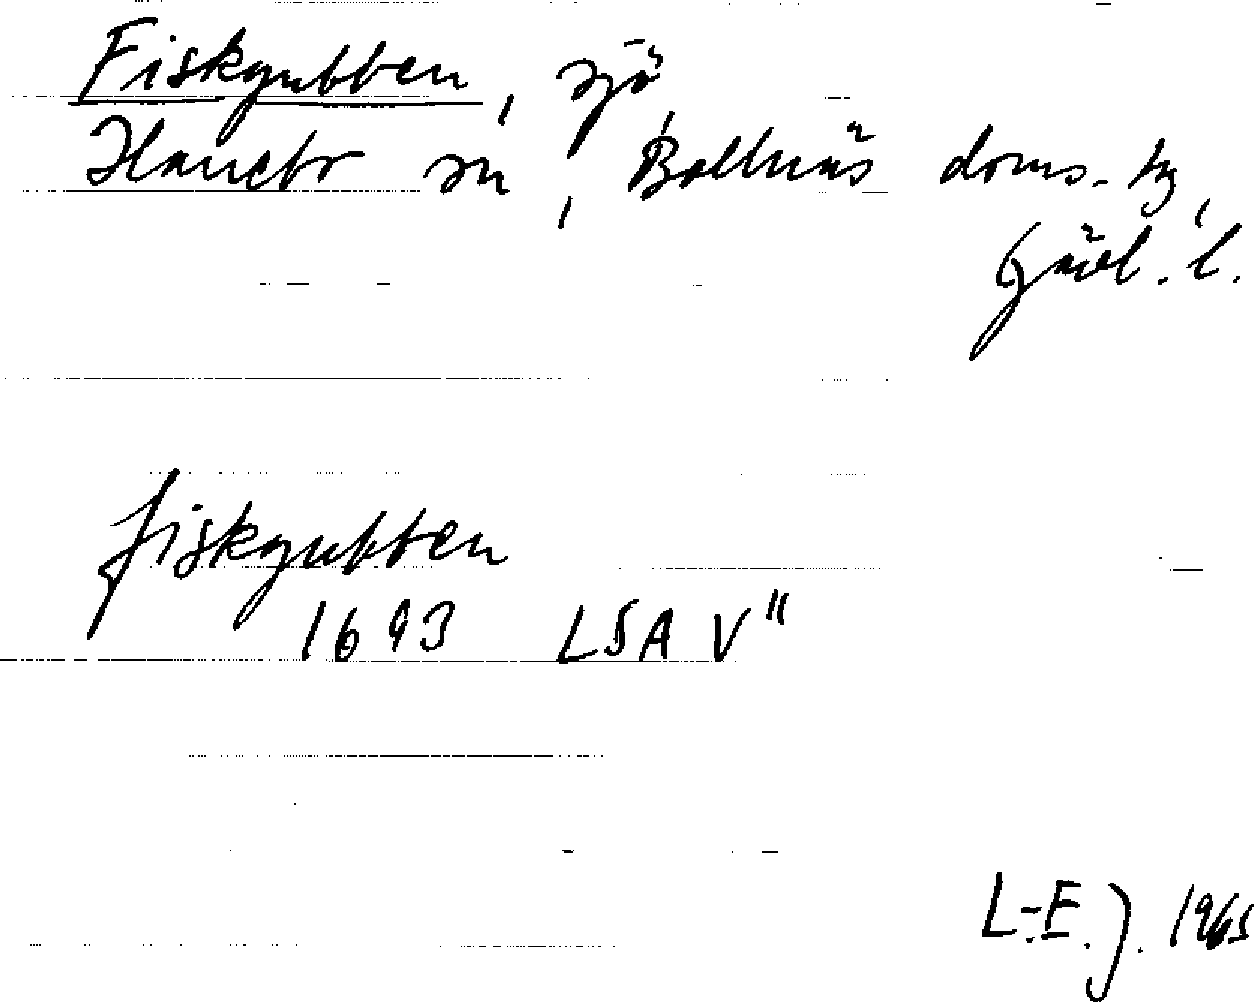 Fiskgubben, sjö
Hanebo sn, Bollnäs doms. tg,
Gävl. l.
fiskgubben
1693 LSA V"
L-E. J. 1965